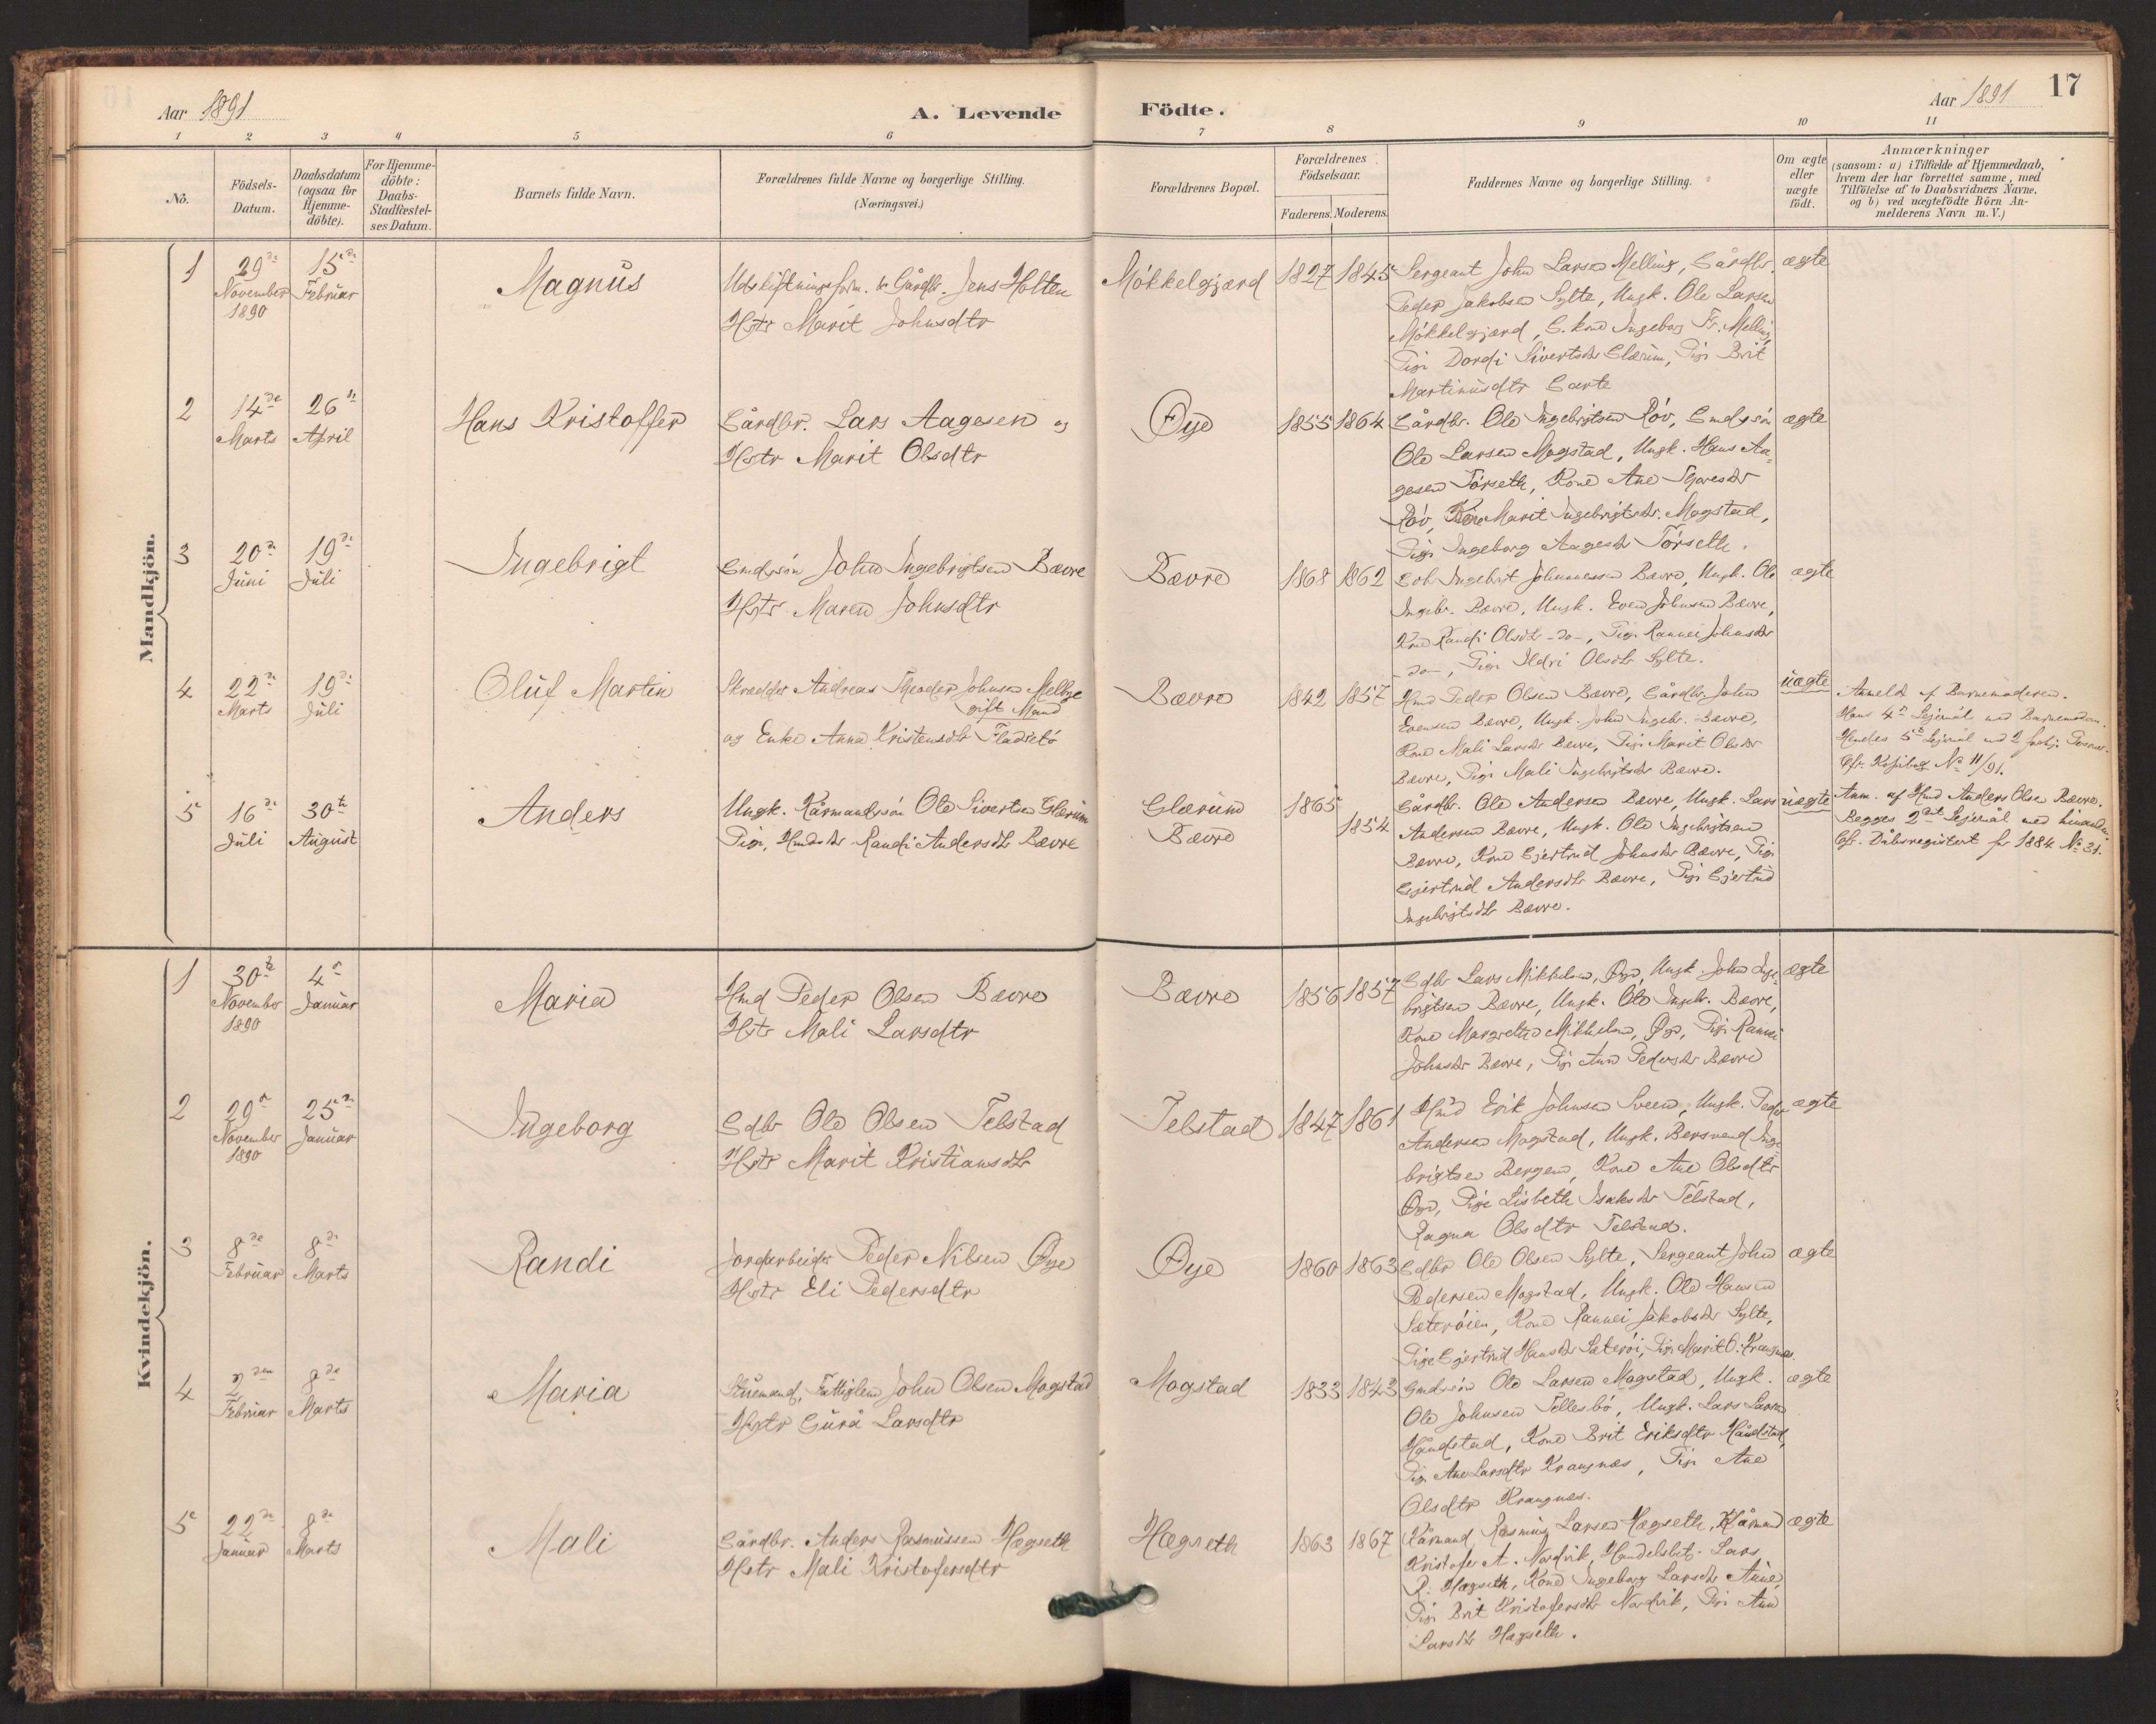 Aar 1891
A. Levende
Födte.
Aar 1891
17
1 2 3 4 5 6 7 8 9 10 11
No.
Födsels-
Datum.
Daabsdatum
(ogsaa for
Hjemme-
döbte).
For Hjemme-
döbte:
Daabs-
Stadfæstel-
ses Datum.
Barnets fulde Navn.
Forældrenes fulde Navne og borgerlige Stilling.
(Næringsvei.)
Forældrenes Bopæl.
Forældrenes
Födselsaar.
Faderens. Moderens.
Faddernes Navne og borgerlige Stilling.
Om ægte
eller
uægte
födt.
Anmærkninger
(saasom: a) i Tilfælde af Hjemmedaab,
hvem der har forrettet samme, med
Tilföielse af to Daabsvidners Navne,
og b) ved uægtefödte Börn An-
melderens Navn m. V.)
Mandkjön.
1
29de
November
1890
15de
Februar
Magnus
Udskiftningsform. & Gårdbr. Jens Holten
Hstr Marit Johnsdtr
Mökkelgjærd
1827 1845
Sergeant John Larsen Melling, Gårdbr.
Peder Jakobsen Sylte, Ungk. Ole Larsen
Mökkelgjærd, G.kone Ingeborg Fr. Melling,
Pige Dordi Sivertsdtr Glærum, Pige Brit
Martinusdtr Garte
ægte
2
14de
Marts
26de
April
Hans Kristoffer
Gårdbr. Lars Aagesen og
Hstr Marit Olsdtr
Øye
1855 1864
Gårdbr. Ole Ingebrigtsen Röv, Gmdssön
Ole Larsen Mogstad, Ungk. Hans Aa-
gesen Törseth, Kone Ane Toresdtr
Röv, Kone Marit Ingebrigtsdtr. Mogstad,
Pige Ingeborg Aagesdtr Törseth.
ægte
3
20de
Juni
19de
Juli
Ingebrigt
Gmdssön John Ingebrigtsen Bævre
Hstr Maren Johnsdtr
Bævre
1868 1862
Ingebrigt Johannessen Bævre, Ungk. Ole
Ingebr. Bævre, Ungk. Even Johnsen Bævre,
Kone Randi Olsdtr -do-, Pige Rannei Johnsdtr
-do-, Pige Ildri Olsdtr Sylte.
ægte
4
22de
Marts
19de
Juli
Oluf Martin
Skrædder Andreas Theodor Johnsen Melbye
gift Mand
og Enke Anna Kristensdtr Fladsetö
Bævre
1842 1857
Hmd Peder Olsen Bævre, Gårdbr. John
Evensen Bævre, Ungk. John Ingebr. Bævre,
Kone Mali Larsdtr Bævre, Pige Marit Olsdtr
Bævre, Pige Mali Ingebrigtsdtr Bævre.
uægte
Anmeldt af Barnemoderen.
Hans 4de Leiermål med Barnemoderen.
Hendes 5te Leiermål med 2 forskj. Personer.
Cfr. Kopibog No 11/91.
5
16de
Juli
30te
August
Anders
Ungk. Kårmandssön Ole Sivertsen Glærum
Pige, Hmdsdtr Randi Andersdtr Bævre
Glærum
Bævre
1865
1854
Gårdbr. Ole Andersen Bævre, Ungk. Lars
Andersen Bævre, Ungk. Ole Ingebrigtsen
Bævre, Kone Gjertrud Johnsdtr Bævre, Pige
Gjertrud Andersdtr Bævre, Pige Gjertrud
Ingebrigtsdtr Bævre.
uægte
Anm. af Hmd Anders Olsen Bævre.
Begges 2det Leiermål med hinanden.
Cfr. Dåbsregistert for 1884 No 31.
Kvindekjön.
1
30te
November
1890
4de
Januar
Maria
Hmd Peder Olsen Bævre
Hstr Mali Larsdtr
Bævre
1856 1857
Gdbr Lars Mikkelsen, Øye, Ungk John Inge-
brigtsen Bævre, Ungk. Ole Ingebr. Bævre,
Kone Margrethe Mikkelsen, Øye, Pige Rannei
Johnsdtr Bævre, Pige Ane Pedersdtr Bævre
ægte
2
29de
November
1890
25de
Januar
Ingeborg
Gdbr Ole Olsen Telstad
Hstr Marit Kristiansdtr
Telstad
1847 1861
Hmd Erik Johnsen Sveen, Ungk. Peder
Andersen Mogstad, Ungk. Bersvend Inge
brigtsen Bergem, Kone Ane Olsdtr
Øye, Pige Lisbeth Isaksdtr Telstad,
Ragna Olsdtr Telstad.
ægte
3
8de
Februar
8de
Marts
Randi
Jordarbeider Peder Nilsen Øye
Hstr Eli Pedersdtr
Øye
1860 1863
Gdbr Ole Olsen Sylte, Sergeant John
Pedersen Mogstad, Ungk. Ole Hansen
Sæteröien, Kone Rannei Jakobsdtr Sylte,
Pige Gjertrud Hansdtr Sæteröi, Pige Marit O. Krangnæs.
ægte
4
2den
Februar
8de
Marts
Maria
Stuemand, Fattiglem John Olsen Mogstad
Hstr Gurå Larsdtr
Mogstad
1833 1843
Gmdssön Ole Larsen Mogstad, Ungk.
Ole Johnsen Tellesbö, Ungk. Lars Larsen
Håndstad, Kone Brit Eriksdtr Håndstad,
Pige Ane Larsdtr Krangnæs, Pige Ane
Olsdtr Krangnæs.
ægte
5
22de
Januar
8de
Marts
Mali
Gårdbr. Anders Rasmussen Hægseth
Hstr Mali Kristofersdtr
Hægseth
1863 1867
Kårmand Rasmus Larsen Hægseth, Kårmand
Kristofer A. Nordvik, Handelsbetj. Lars
R. Hægseth, Kone Ingeborg Larsdtr Aune,
Pige Brit Kristofersdtr Nordvik, Pige Ane
Larsdtr Hægseth.
ægte